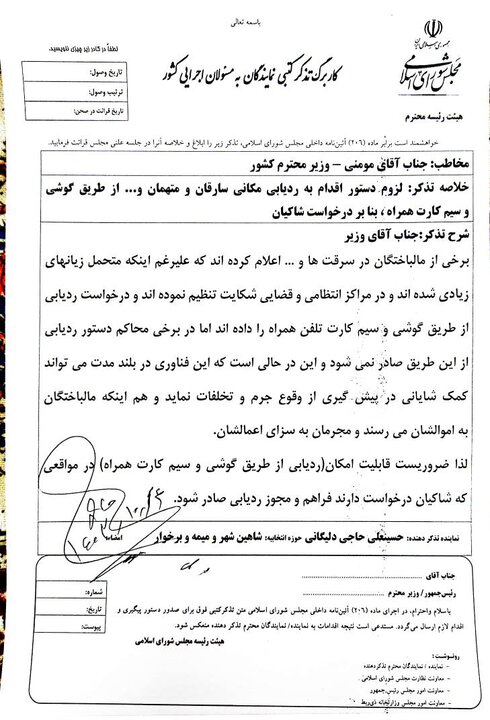 باسمه تعالی
جمهوری اسلامی ایران
مجلس شورای اسلامی
کاربرگ تذکر کتبی نمایندگان به مسئولان اجرایی کشور
لطفاً در کادر زیر چیزی ننویسید.
تاریخ وصول:
ترتیب وصول:
تاریخ قرائت در صحن:
هیئت رئیسه محترم
خواهشمند است برابر ماده (۲۰۶) آئین‌نامه داخلی مجلس شورای اسلامی، تذکر زیر را ابلاغ و خلاصه آنرا در جلسه علنی مجلس قرائت فرمایید.
مخاطب: جناب آقای مومنی – وزیر محترم کشور
خلاصه تذکر: لزوم دستور اقدام به ردیابی مکانی سارقان و متهمان و... از طریق گوشی
و سیم کارت همراه ، بنا بر درخواست شاکیان
شرح تذکر:جناب آقای وزیر
برخی از مالباختگان در سرقت ها و ... اعلام کرده اند که علیرغم اینکه متحمل زیانهای
زیادی شده اند و در مراکز انتظامی و قضایی شکایت تنظیم نموده اند و درخواست ردیابی
از طریق گوشی و سیم کارت تلفن همراه را داده اند اما در برخی محاکم دستور ردیابی
از این طریق صادر نمی شود و این در حالی است که این فناوری در بلند مدت می تواند
کمک شایانی در پیش گیری از وقوع جرم و تخلفات نماید و هم اینکه مالباختگان
به اموالشان می رسند و مجرمان به سزای اعمالشان.
لذا ضروریست قابلیت امکان(ردیابی از طریق گوشی و سیم کارت همراه) در مواقعی
که شاکیان درخواست دارند فراهم و مجوز ردیابی صادر شود.
نماینده تذکر دهنده: حسینعلی حاجی دلیگانی حوزه انتخابیه: شاهین شهر و میمه و برخوار امضاء
جناب آقای
رئیس‌جمهور/ وزیر محترم
شماره:
تاریخ:
پیوست:
باسلام واحترام، در اجرای ماده (۲۰۶) آئین‌نامه داخلی مجلس شورای اسلامی متن تذکرکتبی فوق برای صدور دستور پیگیری و
اقدام لازم ارسال می‌گردد. مستدعی است نتیجه اقدامات به نماینده/ نمایندگان محترم تذکر دهنده منعکس شود.
هیئت رئیسه مجلس شورای اسلامی
رونوشت:
- نماینده / نمایندگان محترم تذکردهنده
- معاونت نظارت مجلس شورای اسلامی
- معاونت امور مجلس رئیس‌جمهور
- معاونت امور مجلس وزارتخانه ذی‌ربط